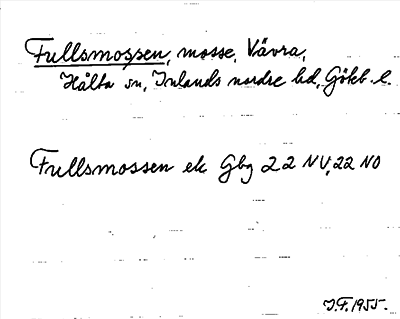 Fullsmossen, mosse, Vävra,
Hålta sn, Inlands nordre hd, Götb. l.
Fullsmossen ek Gbg 22 NV, 22 NO
J.F. 1955.